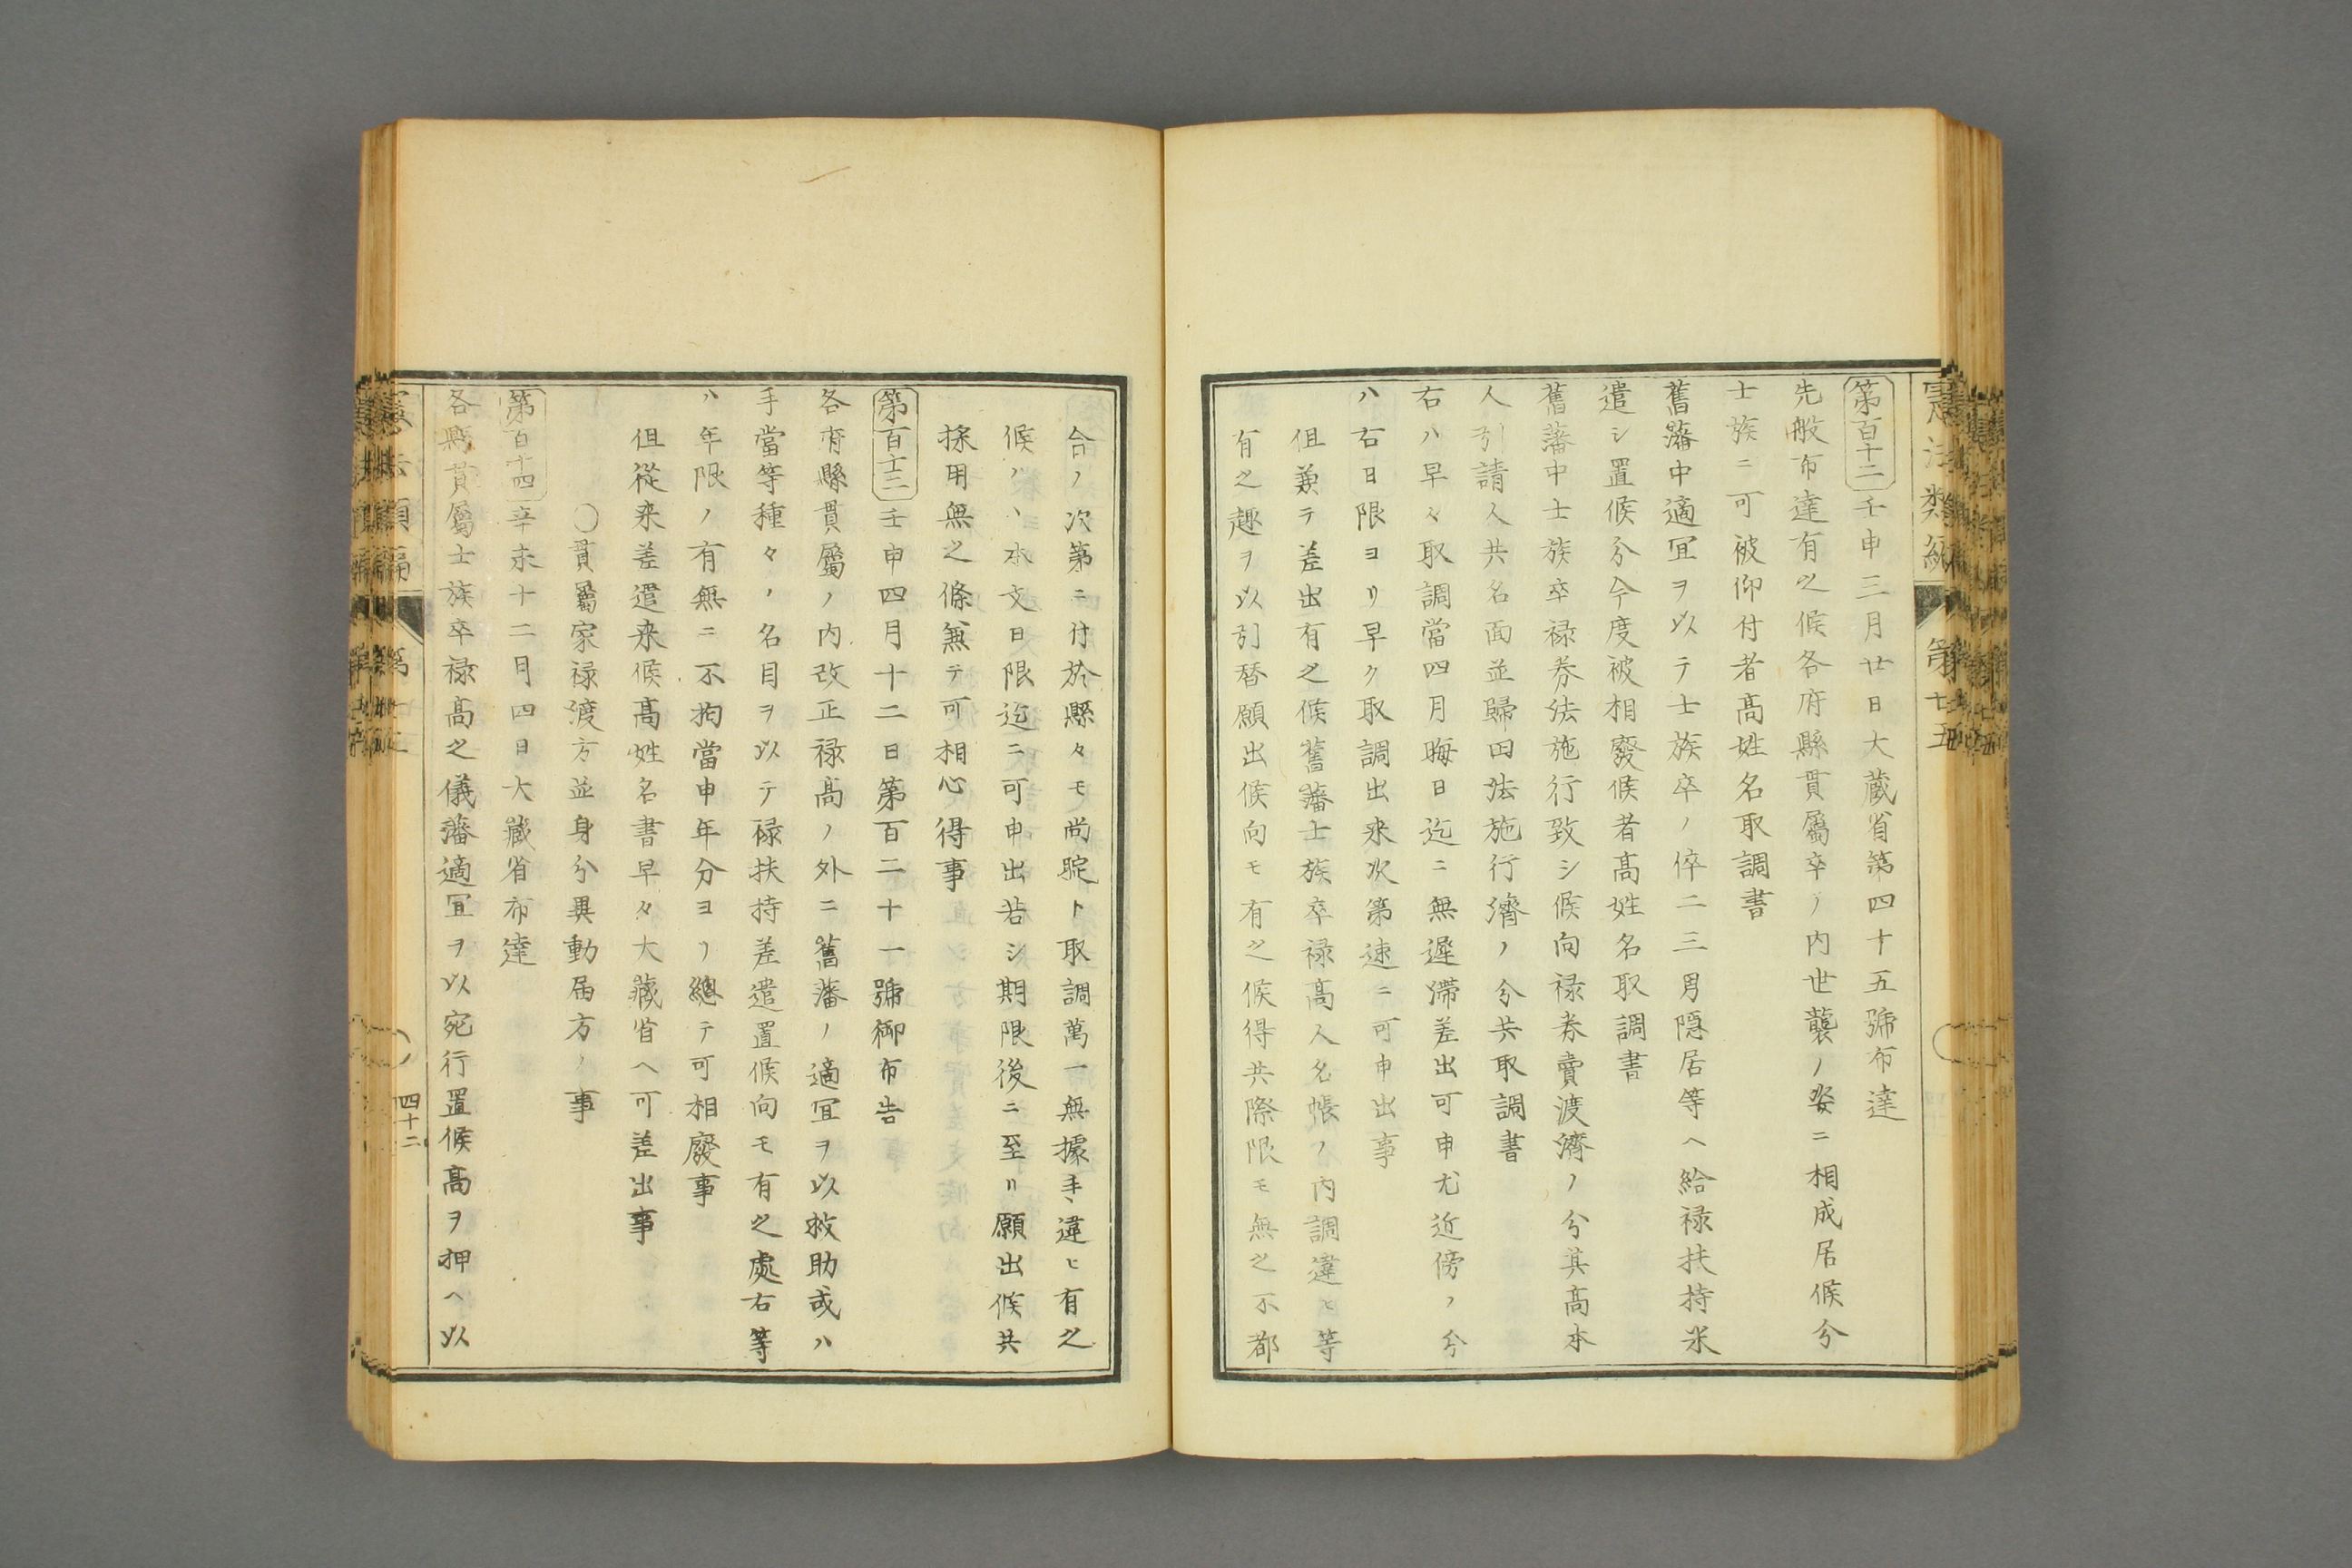 第百十二壬申三月廿日大藏省第四十五號布達
先般布達有之候各府縣貫屬卒ノ内世襲ノ姿ニ相成居候分
士族ニ可被仰付者髙姓名取調書
舊藩中適冝ヲ以テ士族卒ノ倅二三男隠居等ヘ給禄扶持米
遣シ置候分今度被相廢候者髙姓名取調書
舊藩中士族卒禄券法施行致シ候向禄券賣渡濟ノ分其髙本
人引請人共名面並歸田法施行濟ノ分共取調書
右ハ早々取調當四月晦日迄ニ無遲滯差出可申尤近傍ノ分
ハ右日限ヨリ早ク取調出来次第速ニ可申出事
但兼テ差出有之候舊藩士族卒禄髙人名帳ノ内調違ヒ等
有之趣ヲ以引替願出候向モ有之候得共際限モ無之不都
合ノ次第ニ付於縣々モ尚聢ト取調萬一無據手違ヒ有之
候ハヽ本文日限迄ニ可申出若シ期限後ニ至リ願出候共
採用無之條兼テ可相心得事
第百十三壬申四月十二日第百二十一號御布告
各府縣貫屬ノ内改正禄髙ノ外ニ舊藩ノ適冝ヲ以救助或ハ
手當等種々ノ名目ヲ以テ禄扶持差遣置候向モ有之處右等
ハ年限ノ有無ニ不拘當申年分ヨリ總テ可相廢事
但從来差遣来候髙姓名書早々大藏省ヘ可差出事
〇貫屬家禄渡方並身分異動届方ノ事
第百十四辛未十二月四日大藏省布達
各縣貫屬士族卒禄髙之儀藩適冝ヲ以宛行置候髙ヲ押ヘ以
四十二